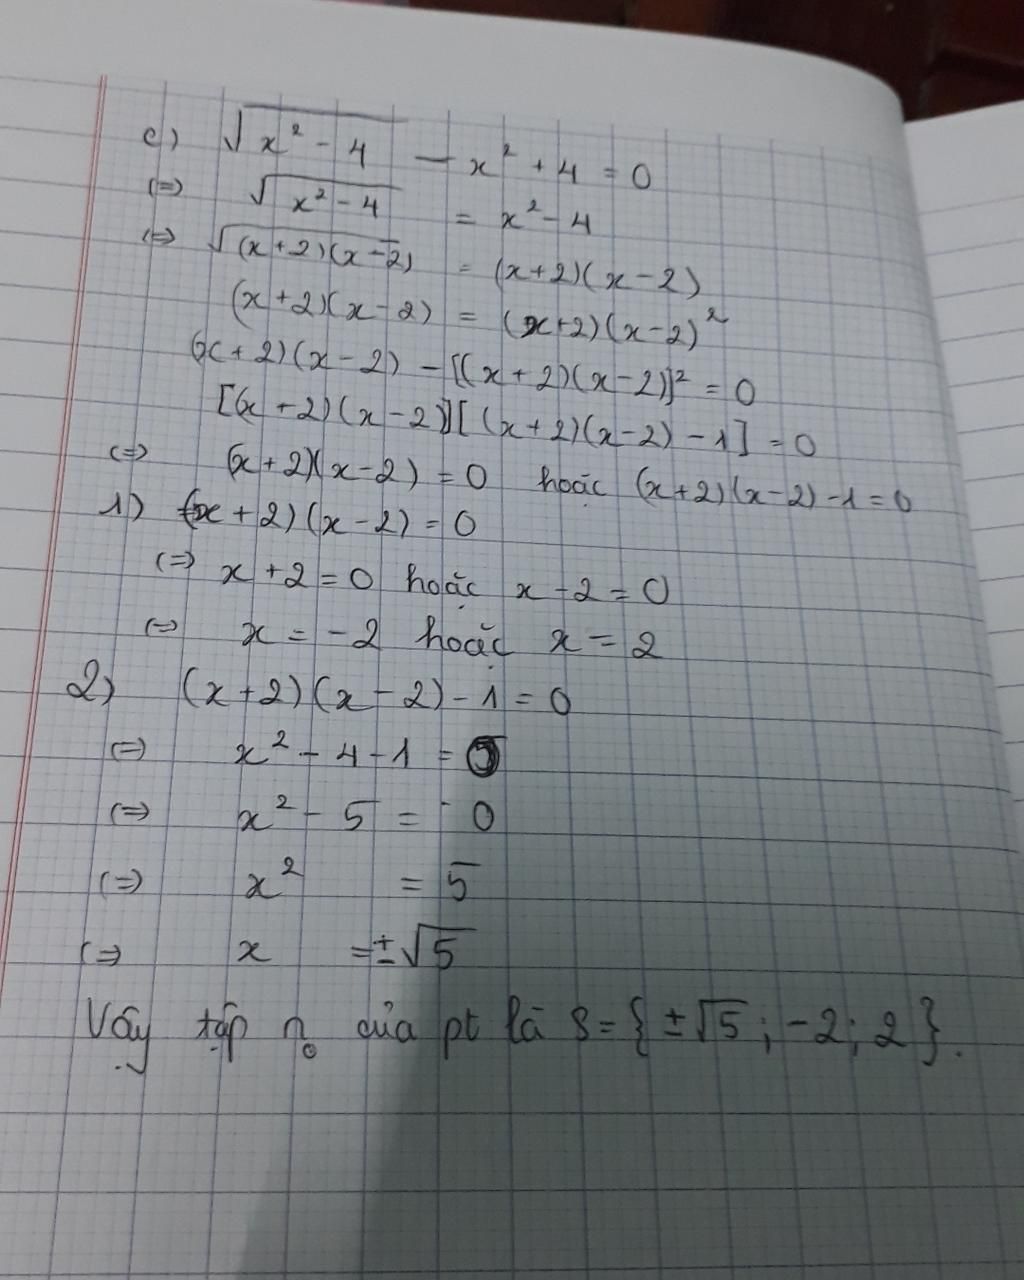 c) √(x² - 4) - x² + 4 = 0
(=) √(x² - 4) = x² - 4
(=) √((x+2)(x-2)) = (x+2)(x-2)
(x+2)(x-2) = (x+2)(x-2)²
(x+2)(x-2) - [(x+2)(x-2)]² = 0
[(x+2)(x-2)][(x+2)(x-2) - 1] = 0
(=) (x+2)(x-2) = 0 hoặc (x+2)(x-2) - 1 = 0
1) (x+2)(x-2) = 0
(=) x + 2 = 0 hoặc x - 2 = 0
(=) x = -2 hoặc x = 2
2) (x+2)(x-2) - 1 = 0
(=) x² - 4 - 1 = 0
(=) x² - 5 = 0
(=) x² = 5
(=) x = ±√5
Vậy tập n₀ của pt là S = {±√5; -2; 2}.